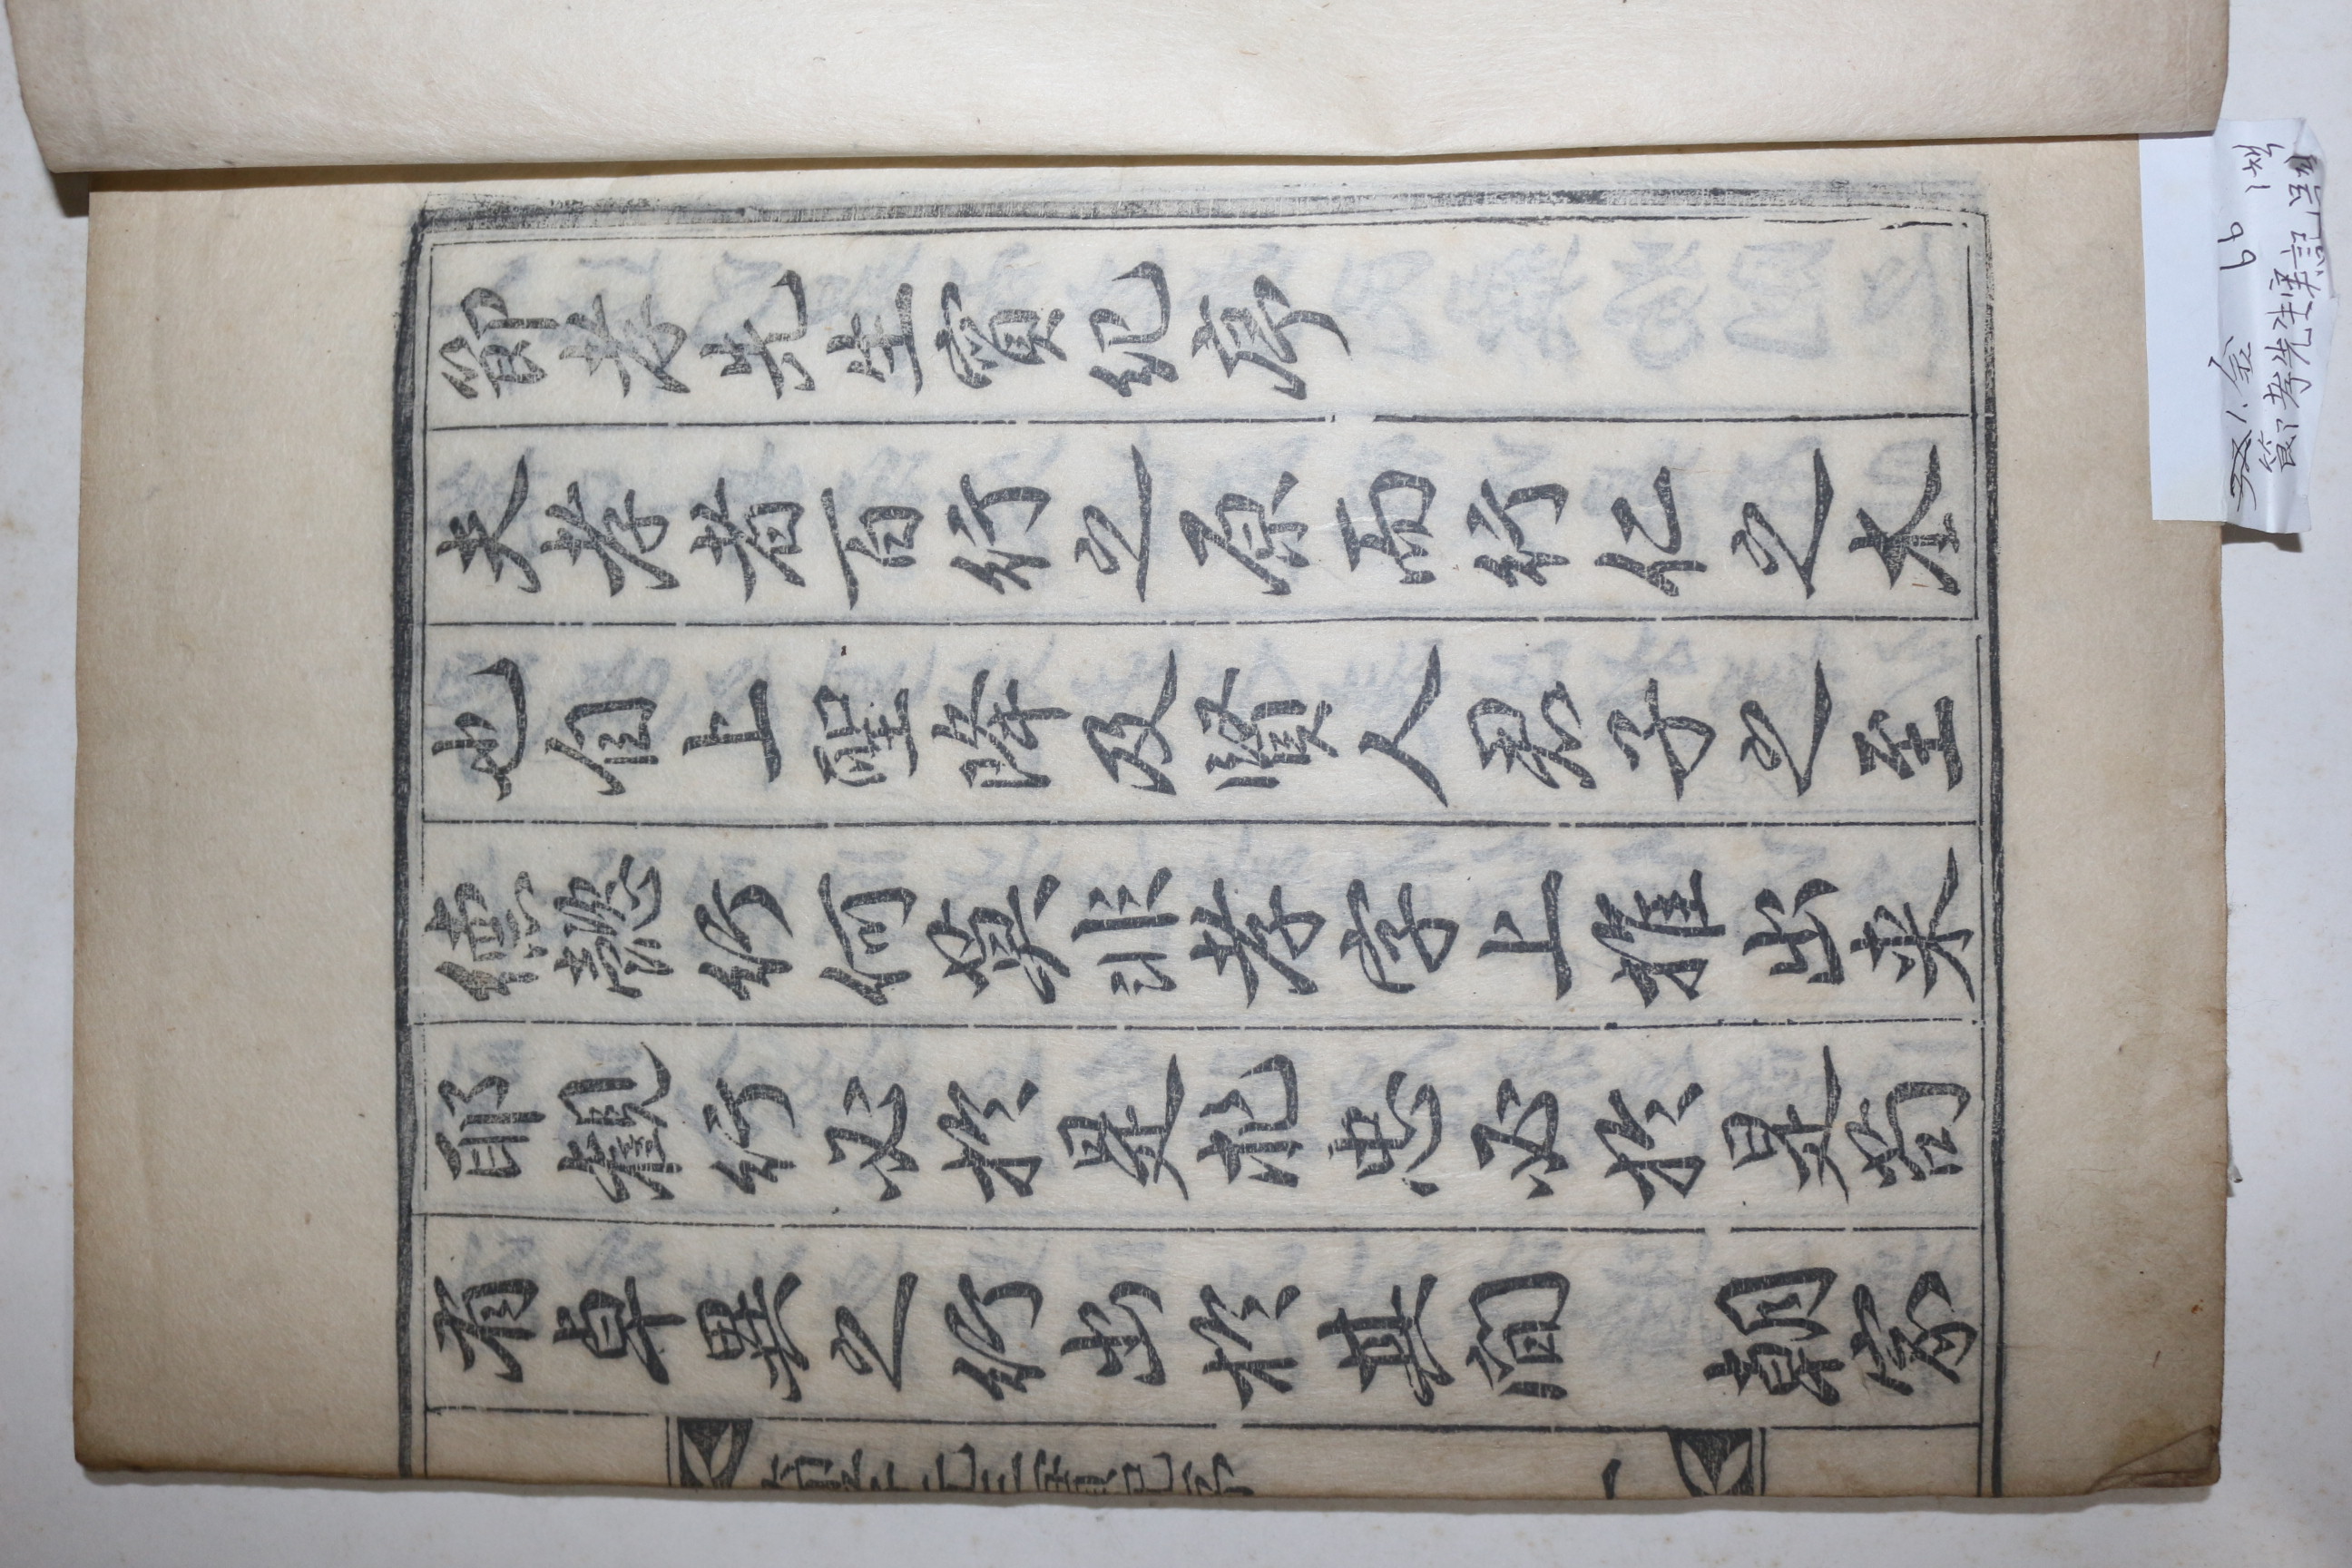 節孝先生實紀序
夫孝者百行之原而行仁之本
也自上聖降及賢人君子之至
德懿行何莫非孝字上推出来
耶觀行必於是求忠必於是苟
有卓異之行出於其間　朝家
一
1. 金 66 1책
節孝先生実記 목판